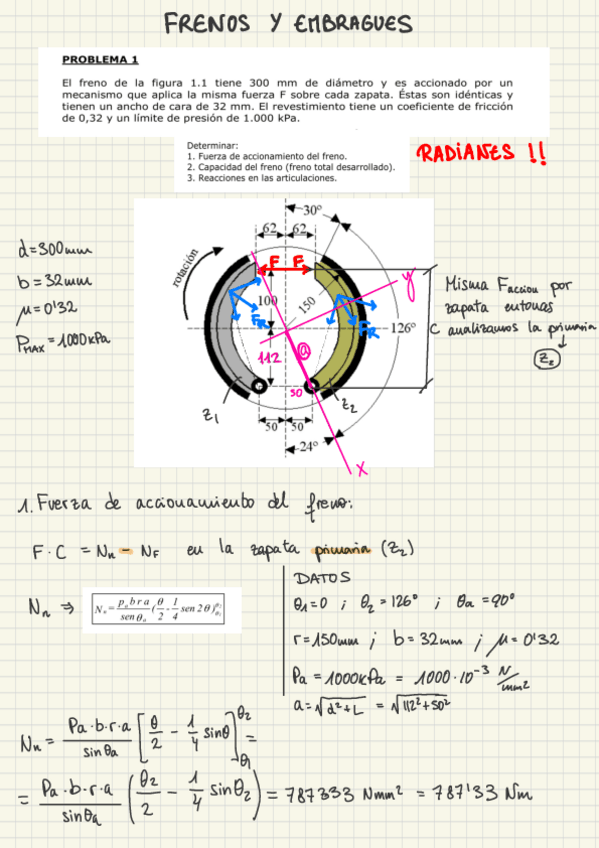 FRENOS Y EMBRAGUES
PROBLEMA 1
El freno de la figura 1.1 tiene 300 mm de diámetro y es accionado por un
mecanismo que aplica la misma fuerza F sobre cada zapata. Éstas son idénticas y
tienen un ancho de cara de 32 mm. El revestimiento tiene un coeficiente de fricción
de 0,32 y un límite de presión de 1.000 kPa.
Determinar:
1. Fuerza de accionamiento del freno.
2. Capacidad del freno (freno total desarrollado).
3. Reacciones en las articulaciones.
RADIANES !!
d=300mm
b=32mm
μ=0'32
PMAX=1000kPa
30º
62 62
rotación
F F
y
100
150
FR
FR
126º
112
a
50
Z1
Z2
50 50
24º
x
C
Misma Faccion por
zapata entonces
analizamos la primaria
↓
Z2
1. Fuerza de accionamiento del freno:
F·C = Nn - NF en la zapata primaria (Z2)
Nn ⇒ Nn = pa b r a / sen θa (θ/2 - 1/4 sen 2θ)θ2 θ1
DATOS
θ1=0 ; θ2=126º ; θa=90º
r=150mm ; b=32mm ; μ=0'32
Pa=1000kPa = 1000·10⁻³ N/mm²
a=√d²+L = √112²+50²
Nn = Pa·b·r·a / sin θa [θ/2 - 1/4 sinθ]θ2 θ1 =
= Pa·b·r·a / sin θa (θ2/2 - 1/4 sinθ2) = 787333 Nmm² = 787'33 Nm